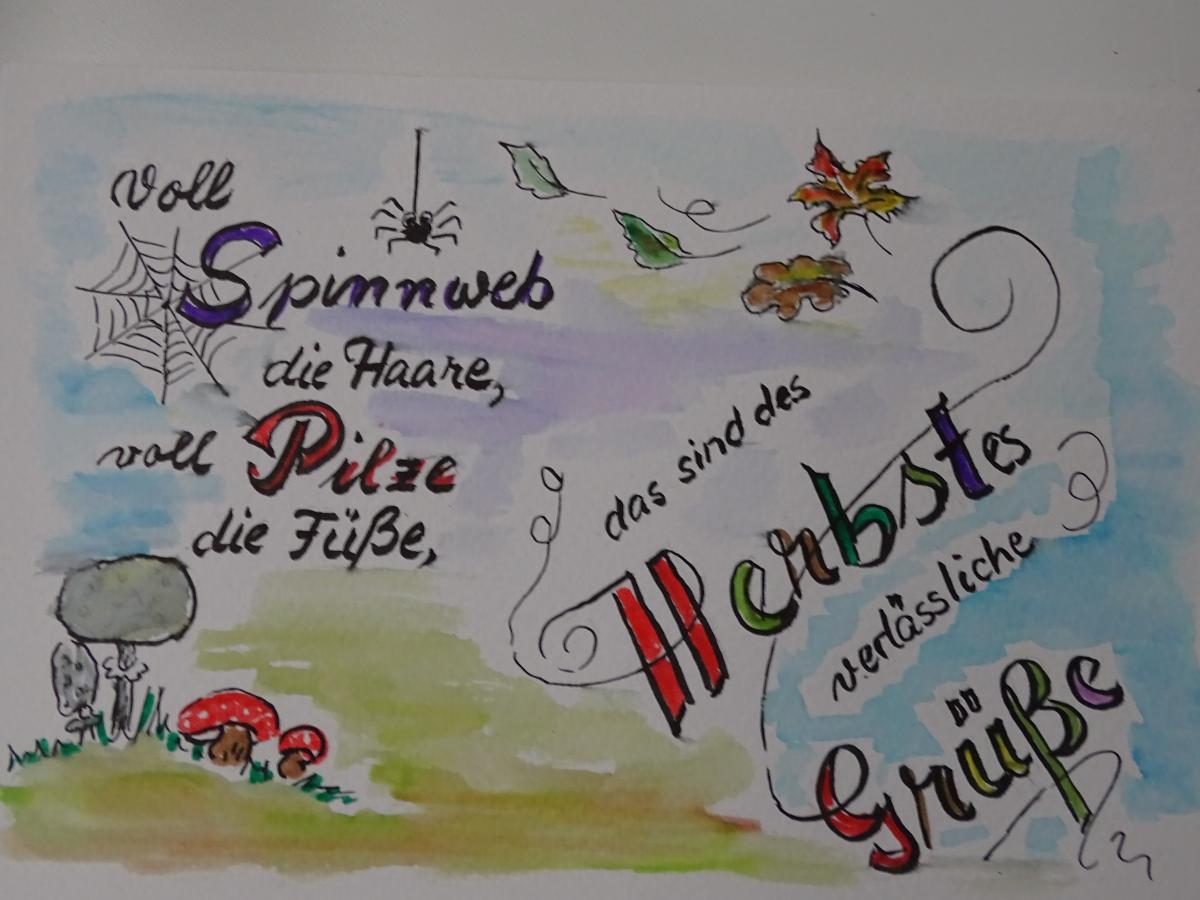 Voll
Spinnweb
die Haare,
voll Pilze
die Füße,
das sind des
Herbstes
verlässliche
Grüße